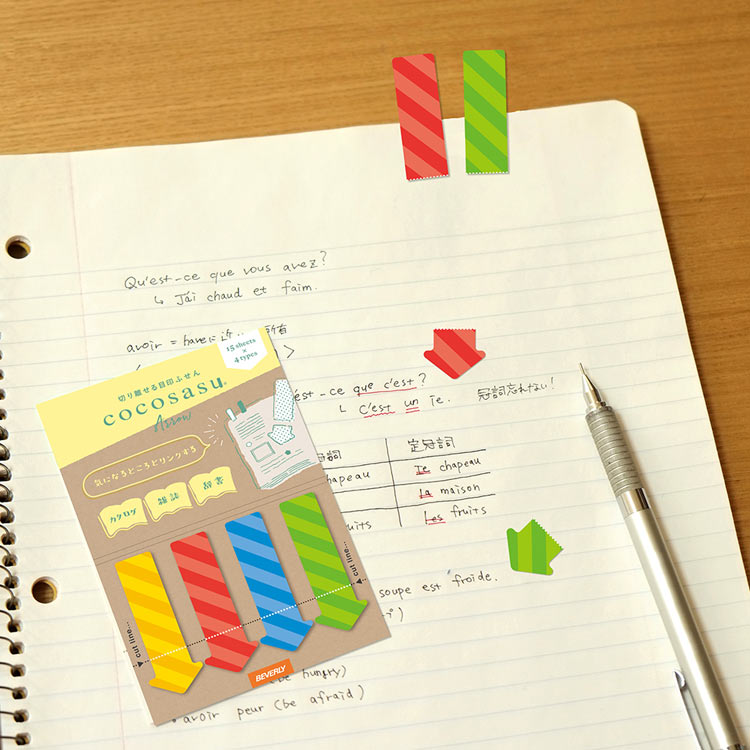 Qu'est-ce que vous avez?
↳ J'ai chaud et faim.
avoir = haveに近い 所有
>
15 sheets
×
4 types
切り離せる目印ふせん
cocosasu
Arrow
気になるところとリンクする
カタログ
雑誌
辞書
cut line...
cut line...
BEVERLY
est-ce que c'est?
↳ C'est un Ie. 冠詞忘れない!
冠詞
定冠詞
apeau
Ie chapeau
la maison
uits
Les fruits
soupe est froide.
(be hungry)
・avoir peur (be afraid)